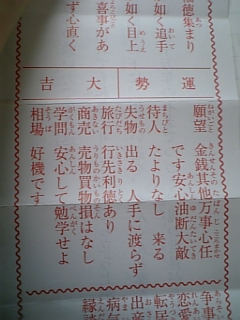 徳集まり
如く追手
如く目上
喜事があ
ず心直く
運勢 大吉
願望 金銭其他万事心任
です安心油断大敵
待人 たよりなし 来る
失物 出る 人手に渡らず
旅行 行先利徳あり
商売 売物買物損はなし
学問 安心して勉学せよ
相場 好機です
争事
恋愛
転居
出産
病気
縁談